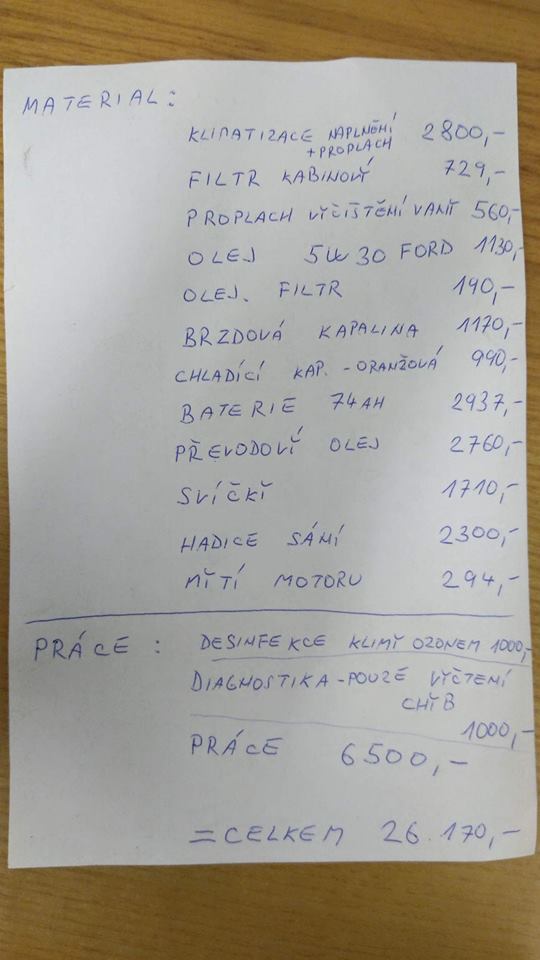 MATERIAL:
KLIMATIZACE NAPLNĚNÍ 2800,-
+PROPLACH
FILTR KABINOVÝ 729,-
PROPLACH VÝČIŠTĚNÍ VANÝ 560,-
OLEJ 5W30 FORD 1130,-
OLEJ. FILTR 190,-
BRZDOVÁ KAPALINA 1170,-
CHLADÍCÍ KAP. - ORANŽOVÁ 990,-
BATERIE 74AH 2937,-
PŘEVODOVÝ OLEJ 2760,-
SVÍČKÝ 1710,-
HADICE SÁNÍ 2300,-
MÝTÍ MOTORU 294,-
PRÁCE : DESINFEKCE KLIMÝ OZONEM 1000,-
DIAGNOSTIKA-POUZE VÝČTENÍ
CHÝB
1000,-
PRÁCE 6500,-
=CELKEM 26.170,-